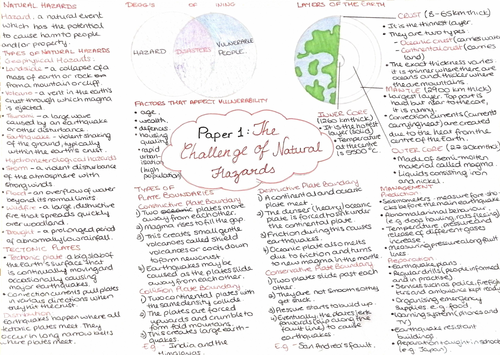 NATURAL HAZARDS
Hazard: a natural event
which has the potential
to cause harm to people
and/or property.
TYPES OF NATURAL HAZARDS
Geophysical Hazards:
Landslide - a collapse of a
mass of earth or rock from
a mountain or cliff
Volcano - a vent in the earth's
crust through which magma
is ejected
Tsunami - a large wave
caused by an earthquake
or other disturbance
Earthquake - violent shaking
of the ground, typically
within the earth's crust.
Hydrometeorological Hazards
Storm - a violent disturbance
of the atmosphere with
strong winds
Flood - an overflow of water
beyond its normal limits
Wildfire - a large destructive
fire that spreads quickly
over woodland.
Drought - a prolonged period
of abnormally low rainfall.
TECTONIC PLATES
Tectonic plate - a big slab of
the Earth's surface that
is continually moving and
occasionally causing
major earthquakes
Convection currents pull plates
in various directions when
they hit the crust
Distribution
Earthquakes happen where all
tectonic plates meet. They
occur in long narrow belts
where plates meet.
DEGG'S MODEL
HAZARD
DISASTERS
VULNERABLE
PEOPLE
FACTORS THAT AFFECT VULNERABILITY
age
wealth
defences
housing
quality
rapid
urban-
isation
(high
population)
Paper 1: The
Challenge of Natural
Hazards
TYPES OF
PLATE BOUNDARIES
Constructive Plate Boundary
1) Two plates move
away from each other.
2) Magma rises to fill the gap
3) This creates small, gentle
volcanoes called shield
volcanoes or cools down
to form new crust
4) Earthquakes may be
caused as the plates slide
away from each other.
Collision Plate Boundary
1) Two continental plates with
the same density collide
2) The plates are forced
upwards and crumble to
form fold mountains.
3) This creates large earth-
quakes.
E.g India and the
Himalayas
Destructive Plate Boundary
1) A continental and oceanic
plate meet
2) The denser (heavy) oceanic
plate is forced to sink under
the continental plate
3) Friction during this causes
earthquakes
4) Oceanic plate also melts
due to friction and turns
to new magma in the mantle
Conservative Plate Boundary
1) Two plates slide past each
other.
2) They are not smooth so they
get stuck.
3) Pressure starts to build up
4) Eventually, the plates jerk
forwards (in a long fine
fault line) to cause
earthquakes
E.g - San Andreas fault.
LAYERS OF THE EARTH
CRUST (8-65km thick)
It is the thinnest layer.
They are two types
- Oceanic crust (carries water)
- Continental crust (carries
land)
The exact thickness varies
it is thinner where there are
oceans and thicker where
there are mountains
MANTLE (2900 km thick)
Largest layer. Top part is
solid but near to the core,
it is runny.
Convection currents (currents
carrying heat) are created
due to the heat from the
centre of the Earth.
OUTER CORE (2250km thick)
Made of semi-molten
material called magma.
Liquids consisting iron
and nickel.
INNER CORE
(1260 km thick)
It is the hottest
layer (solid)
Temperature
at the centre
is 5500 °C
MANAGEMENT
Prediction
Seismometers - measure for shock
waves before the main earthquake
Abnormal animal behaviour
e.g. dogs howling, rats leaving
Temperature, pressure and
release of different gases
increase
Measuring pressure along fault
lines
Preparation
Have escape plans
Organising emergency
supplies e.g. food
Warning system (phones and
TV)
Earthquake resistant
buildings